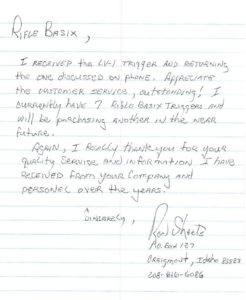 Rifle Basix,
I received the LV-1 trigger and returning
the one discussed on phone. Appreciate
the customer service, outstanding! I
currently have 7 Rifle Basix Triggers and
will be purchasing another in the near
future.
Again, I really thank you for your
quality service and information I have
received from your company and
personel over the years.
Sincerely,
Ron Sheetz
P.O. Box 127
Craigmont, Idaho 83523
208-816-6086